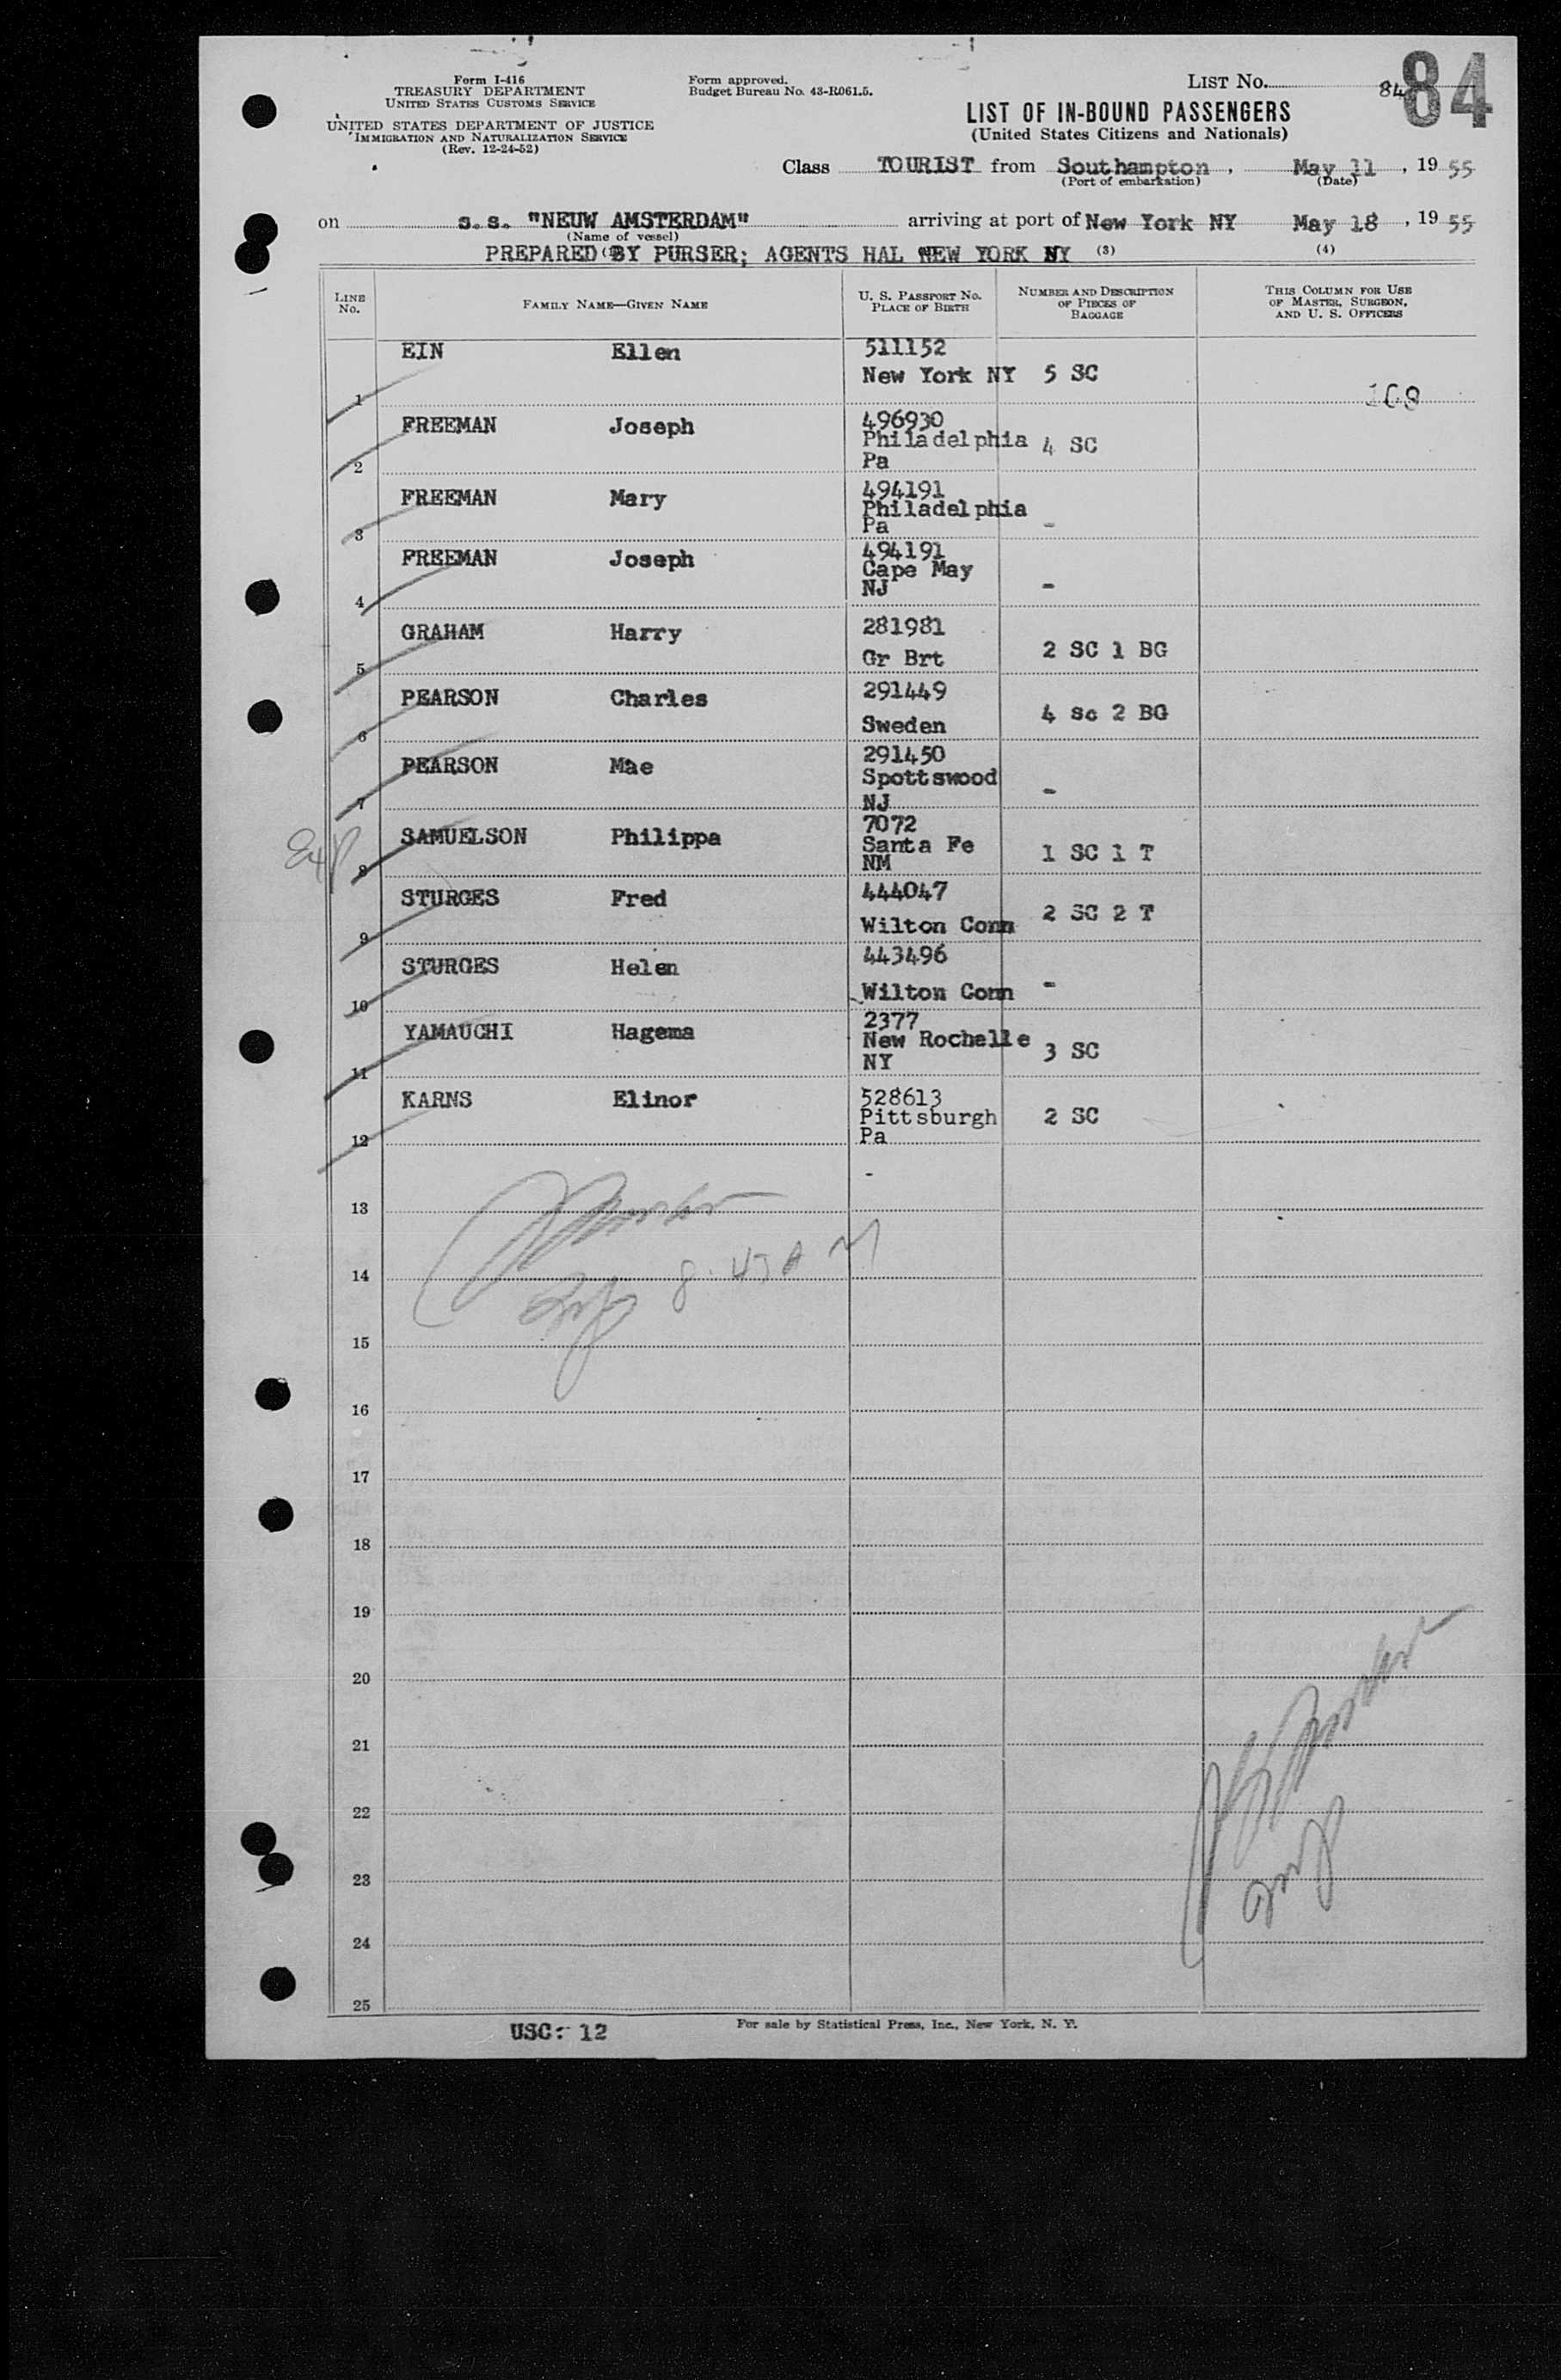 84
Form I-416
TREASURY DEPARTMENT
UNITED STATES CUSTOMS SERVICE
UNITED STATES DEPARTMENT OF JUSTICE
IMMIGRATION AND NATURALIZATION SERVICE
(Rev. 12-24-52)
Form approved.
Budget Bureau No. 43-R061.5.
LIST No. 84
LIST OF IN-BOUND PASSENGERS
(United States Citizens and Nationals)
Class TOURIST from Southampton, May 11, 1955
(Port of embarkation) (Date)
on s.s. "NEUW AMSTERDAM" arriving at port of New York NY May 18, 1955
(Name of vessel)
PREPARED BY PURSER; AGENTS HAL NEW YORK NY (3) (4)
LINE No. FAMILY NAME—GIVEN NAME U. S. PASSPORT No. PLACE OF BIRTH NUMBER AND DESCRIPTION OF PIECES OF BAGGAGE THIS COLUMN FOR USE OF MASTER, SURGEON, AND U. S. OFFICERS
1 EIN Ellen 511152 New York NY 5 SC 108
2 FREEMAN Joseph 496930 Philadelphia Pa 4 SC
3 FREEMAN Mary 494191 Philadelphia Pa -
4 FREEMAN Joseph 494191 Cape May NJ -
5 GRAHAM Harry 281981 Gr Brt 2 SC 1 BG
6 PEARSON Charles 291449 Sweden 4 Sc 2 BG
7 PEARSON Mae 291450 Spottswood NJ -
8 SAMUELSON Philippa 7072 Santa Fe NM 1 SC 1 T
9 STURGES Fred 444047 Wilton Conn 2 SC 2 T
10 STURGES Helen 443496 Wilton Conn -
11 YAMAUCHI Hagema 2377 New Rochelle NY 3 SC
12 KARNS Elinor 528613 Pittsburgh Pa 2 SC
13 -
14 8.45 AM
15
16
17
18
19
20
21
22
23
24
25
USC: 12
For sale by Statistical Press, Inc., New York, N. Y.